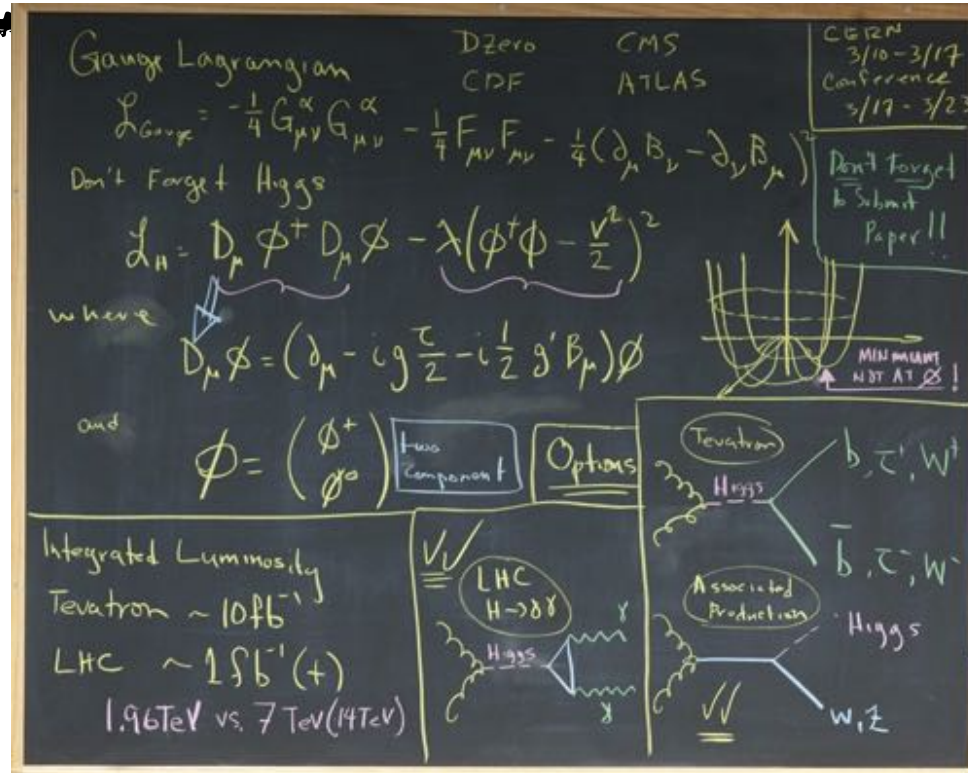 Gauge Lagrangian
DZero CMS
CDF ATLAS
CERN
3/10-3/17
Conference
3/17 - 3/23
ℒ_Gauge = -1/4 G^α_μν G^α_μν - 1/4 F_μν F_μν - 1/4 (∂_μ B_ν - ∂_ν B_μ)^2
Don't Forget Higgs
Don't Forget
to Submit
Paper!!
ℒ_H = D_μ ϕ^+ D_μ ϕ - λ(ϕ^+ϕ - v^2/2)^2
where
D_μ ϕ = (∂_μ - i g τ/2 - i 1/2 g' B_μ)ϕ
MINIMUM
NOT AT ϕ!
and
ϕ = (ϕ^+
ϕ^0)
two
component
Options
Tevatron
Higgs
b, τ^+, W^+
b̄, τ^-, W^-
Associated
Production
Higgs
W, Z
Integrated Luminosity
Tevatron ~ 10fb^-1
LHC ~ 1fb^-1 (+)
1.96TeV vs. 7 TeV (14TeV)
LHC
H→γγ
Higgs
γ
γ